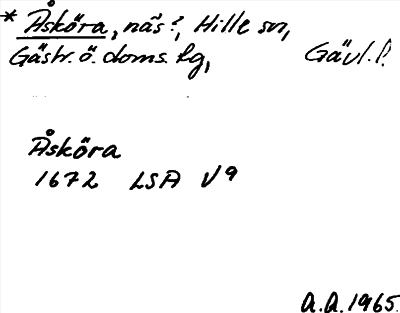 * Åsköra, näs?, Hille sn,
Gästr. ö. doms. lg, Gävl. l.
Åsköra
1672 LSA V9
A.A. 1965.